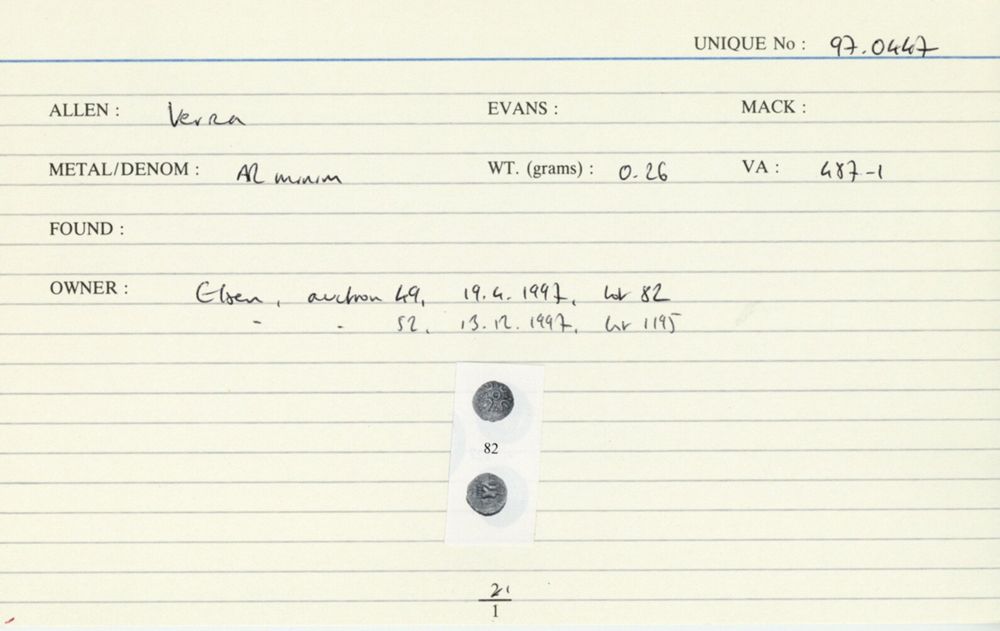 UNIQUE No : 97.0447
ALLEN : Verica EVANS : MACK :
METAL/DENOM : AR minim WT. (grams) : 0.26 VA : 487-1
FOUND :
OWNER : Elsen, auction 49, 19.4.1997, lot 82
- - 52, 13.12.1997, lot 1195
82
21
1